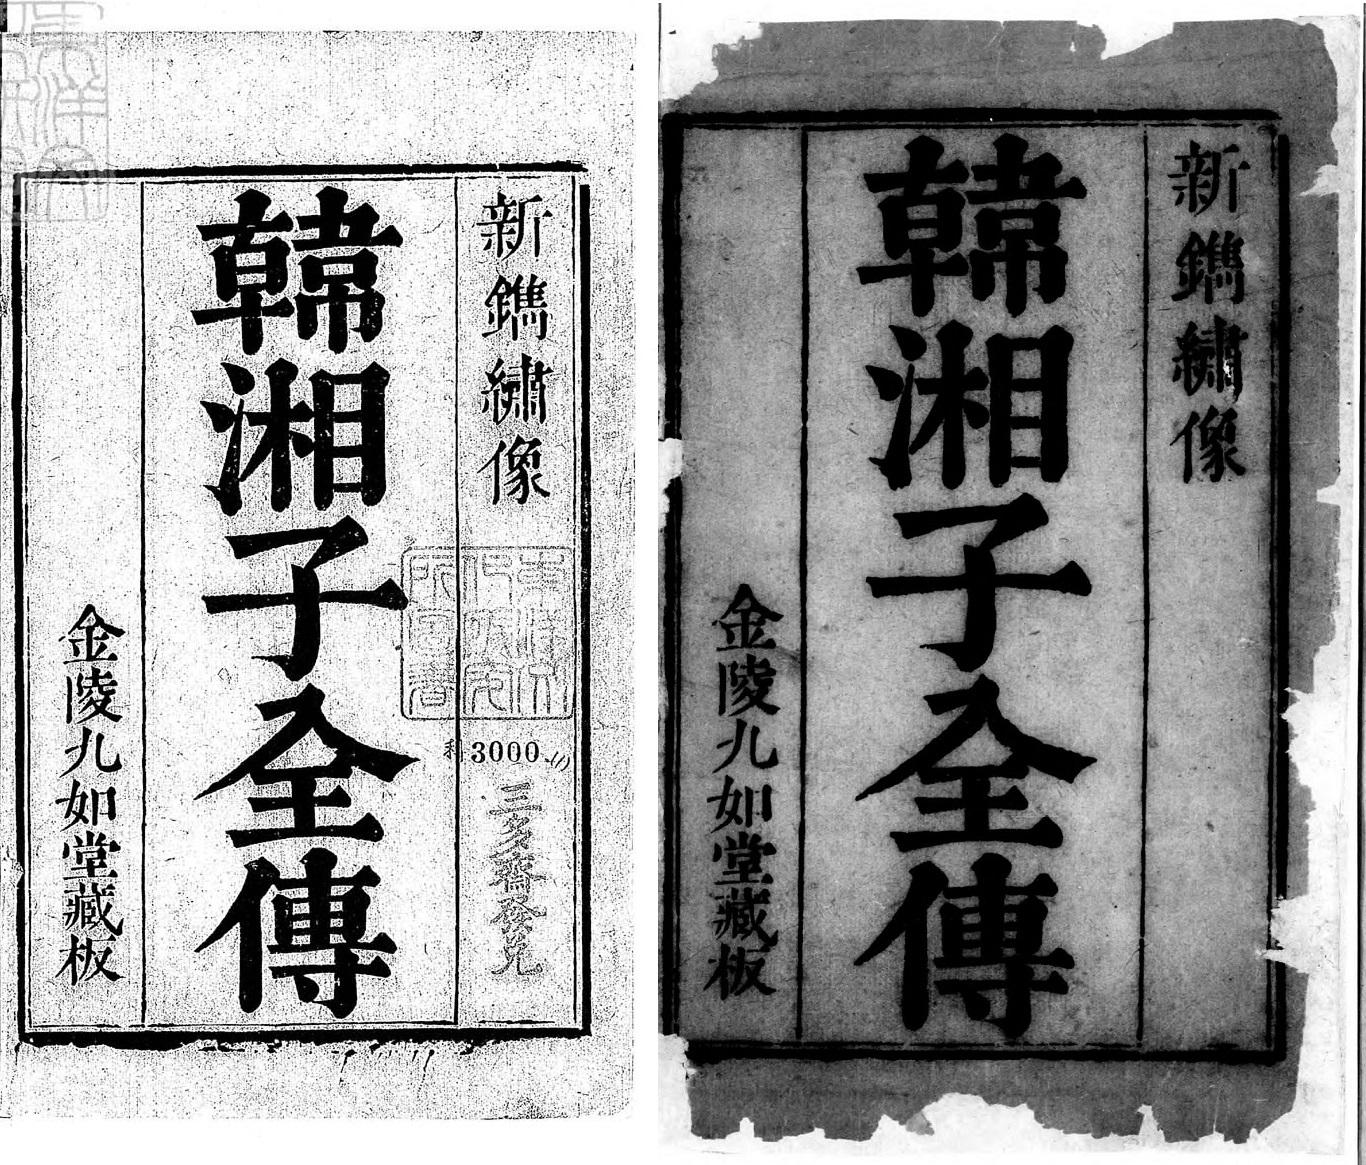 新鐫繡像
三多齋發兌
韓湘子全傳
金陵九如堂藏板
3000
新鐫繡像
韓湘子全傳
金陵九如堂藏板